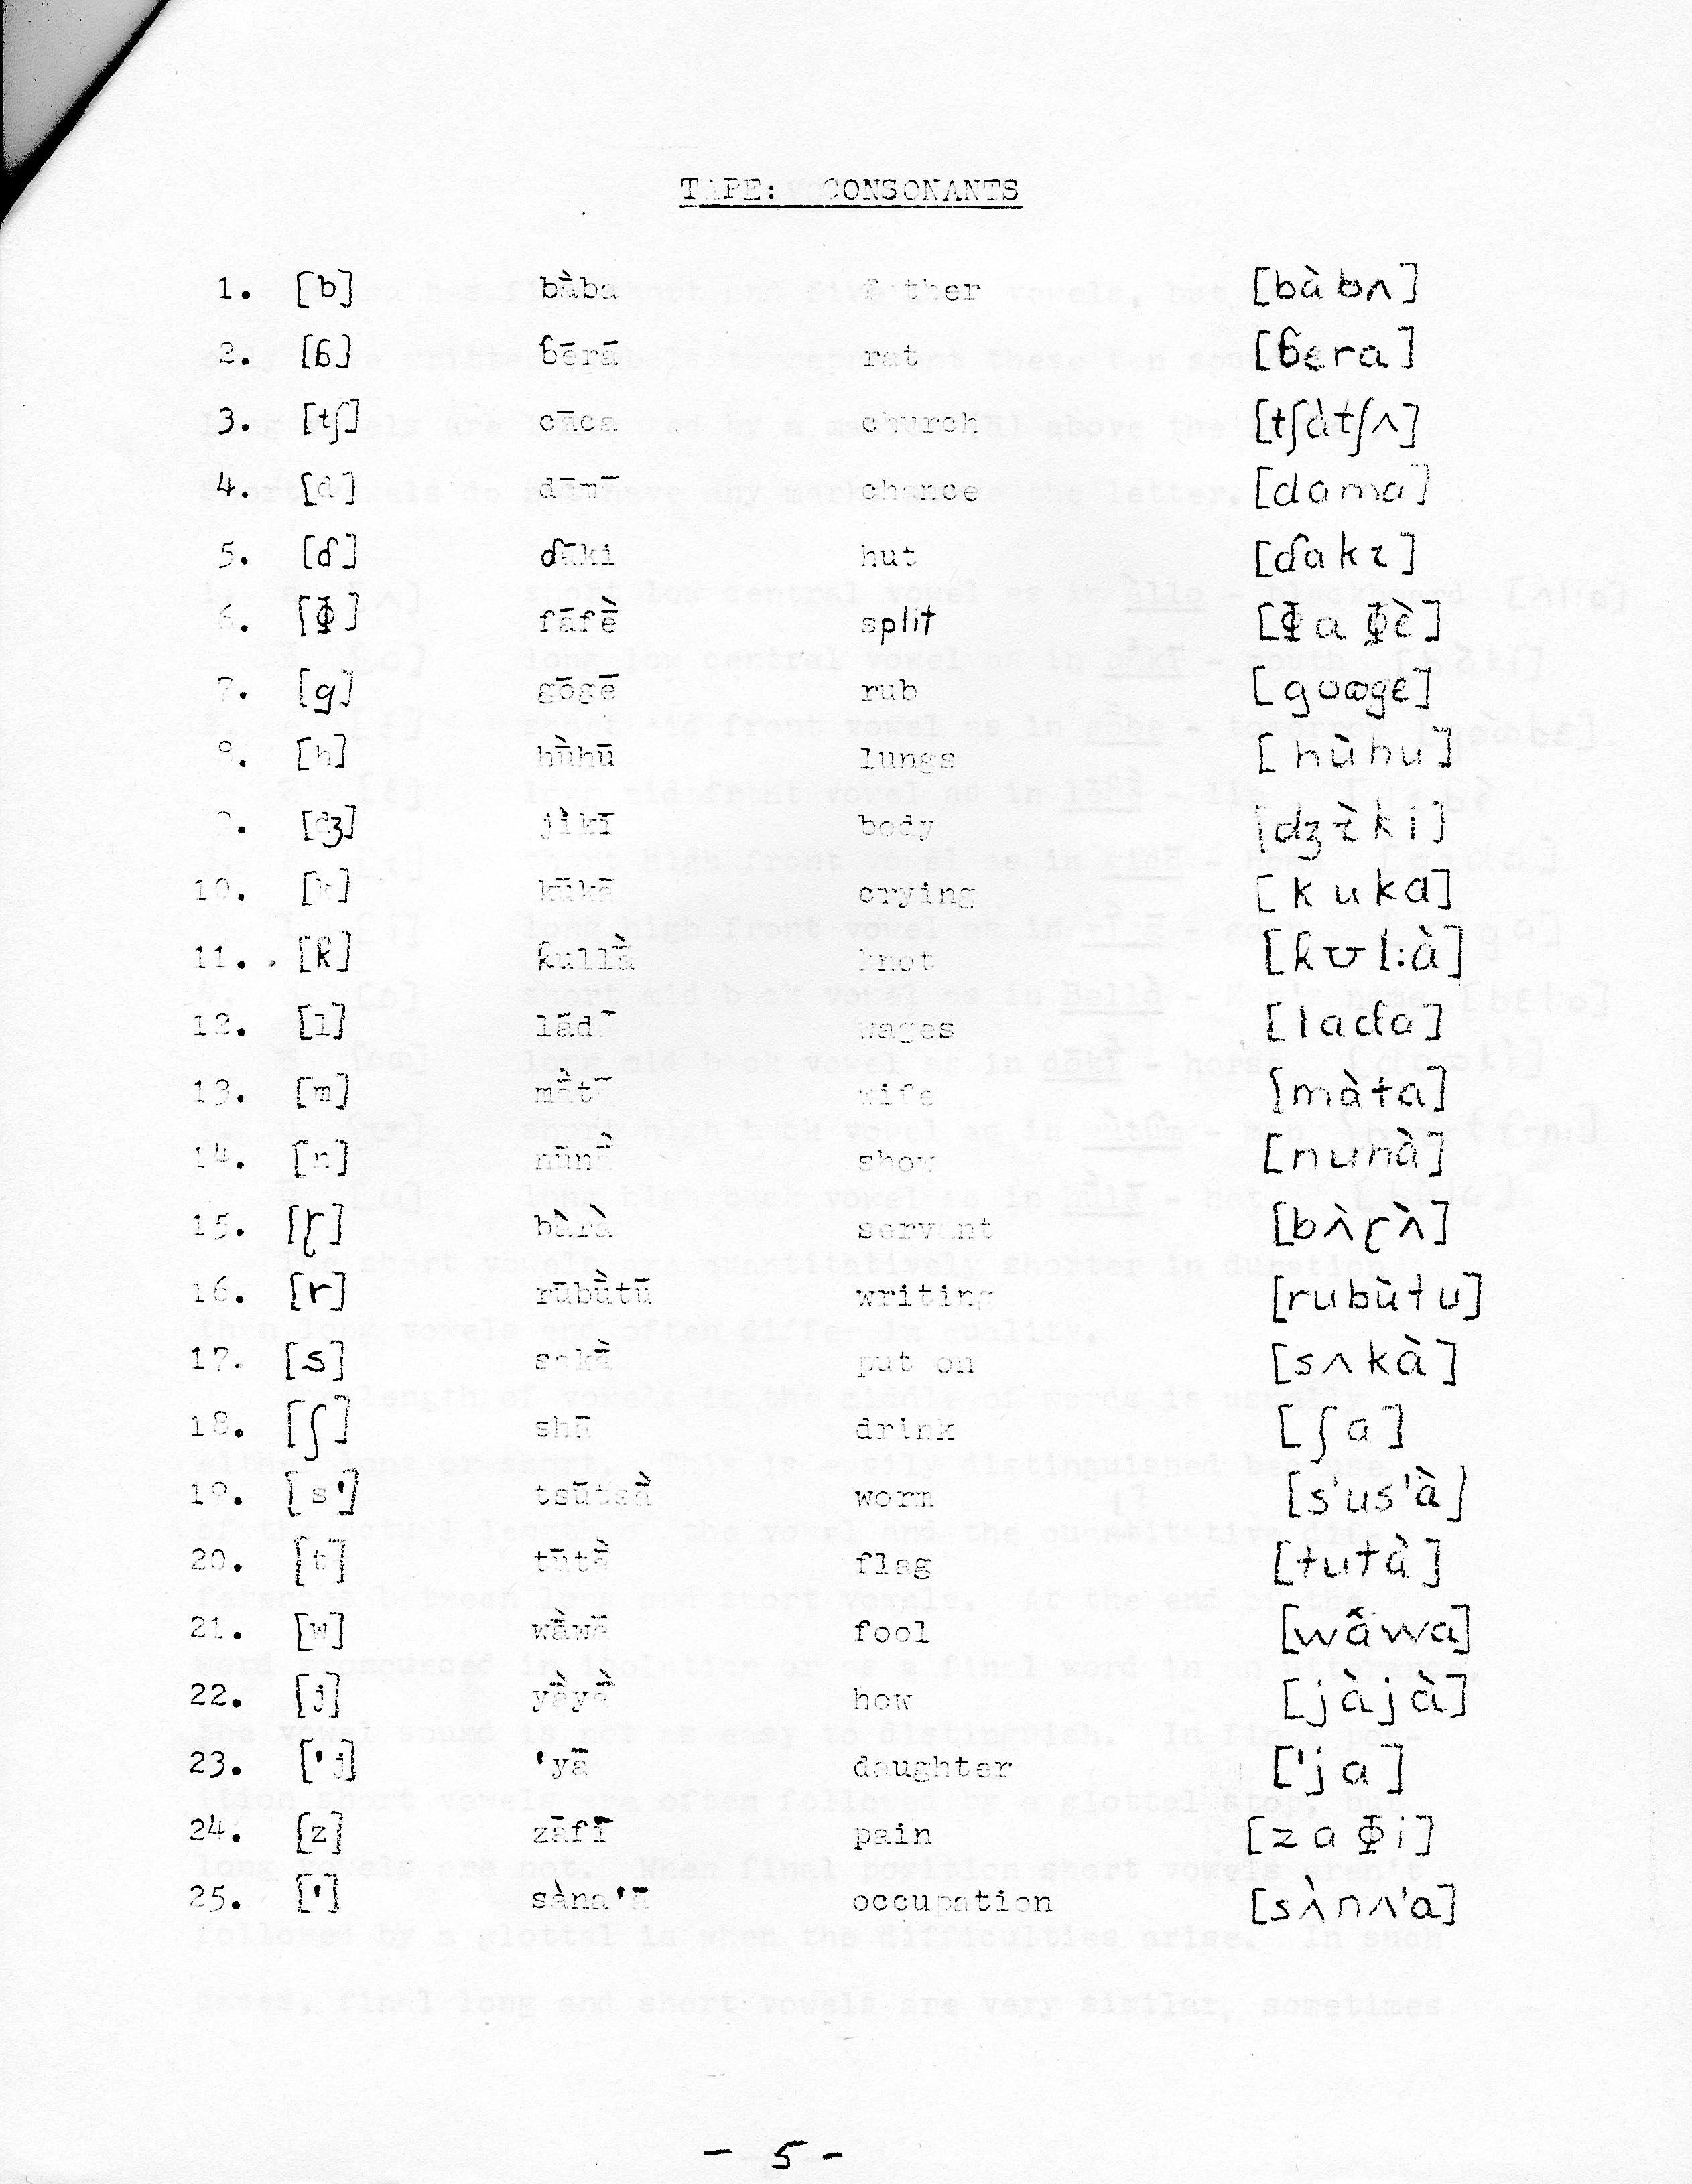 TAPE: CONSONANTS
1. [b] bā̀ba father [bàbʌ]
2. [ɓ] ɓērā rat [ɓera]
3. [tʃ] cāca church [tʃàtʃʌ]
4. [d] dāmā chance [dama]
5. [ɗ] ɗāki hut [ɗakɪ]
6. [Φ] fāfḕ split [ΦaΦè]
7. [g] gōgē rub [guoge]
8. [h] hū̀hū lungs [hùhu]
9. [dʒ] jìkī body [dʒɪ̀ki]
10. [k] kūkā crying [kuka]
11. [ƙ] ƙullā̀ knot [ƙʊl:à]
12. [l] lādā wages [lada]
13. [m] mā̀tā wife [màta]
14. [n] nūnā̀ show [nunà]
15. [ɽ] bàrà servant [bʌ̀ɽʌ̀]
16. [r] rūbū̀tū writing [rubùtu]
17. [s] sakā̀ put on [sʌkà]
18. [ʃ] shā drink [ʃa]
19. [s'] tsūtsā̀ worm [s'us'à]
20. [t] tūtā̀ flag [tutà]
21. [w] wā̀wā fool [wâwa]
22. [j] yā̀yā̀ how [jàjà]
23. ['j] 'yā daughter ['ja]
24. [z] zāfī pain [zaΦi]
25. ['] sàna'ā occupation [sʌ̀nʌ'a]
- 5 -